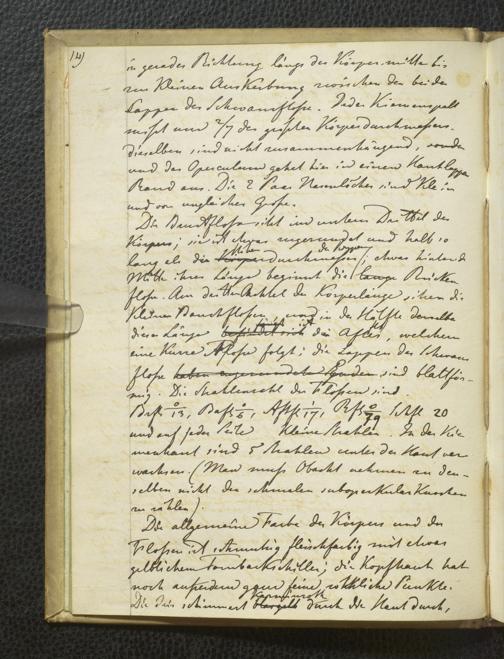 14)
in gerader Richtung längs der Körpermitte bis
zur kleinen Auskerbung zwischen den beiden
Lappen der Schwanzflosse. Jeder Kiemenspalt
misst nur 2/7 des größten Körperdurchmessers.
dieselben sind nicht zusammenhängend, sondern
und das Operculum gehet hin in einen Hautlappen
Rand aus. Die 2 Paar Nasenlöcher sind klein
und von ungleicher Größe.
Die Brustflosse sitzt im untern Drittheil des
Körpers; sie ist etwas zugerundet und halb so
lang als die Körperdurchmesser; etwas hinter der
Mitte ihrer Länge beginnt die lange Rücken
flosse. Am der Achtel der Körperlänge sitzen die
kleinen Bauchflossen, und in der Hälfte derselben
dieser Länge befindet sich der After, welchem
eine kurze Afterflosse folgt; die Lappen der Schwanz
flosse haben zugerundete Enden sind blattför-
mig. Die Strahlenzahl der Flossen sind
Brfl 0/13, Bafl 1/5, Affl 1/17, Rfl 0/79 Schfl 20
und auf jeder Seite kleine Strahlen. In der Kie-
menhaut sind 5 Strahlen unter der Haut ver
wachsen. (Man muss Obacht nehmen zu den-
selben nicht den schmalen suboperkular Knochen
zu zählen).
Die allgemeine Farbe des Körpers und der
Flossen ist schmutzig fleischfarbig mit etwas
gelblichem Tombackschiller; die Kopfhaut hat
noch außerdem ganz feine, röthliche Punkte.
Die Iris schimmert blassgelb durch die Haut durch,